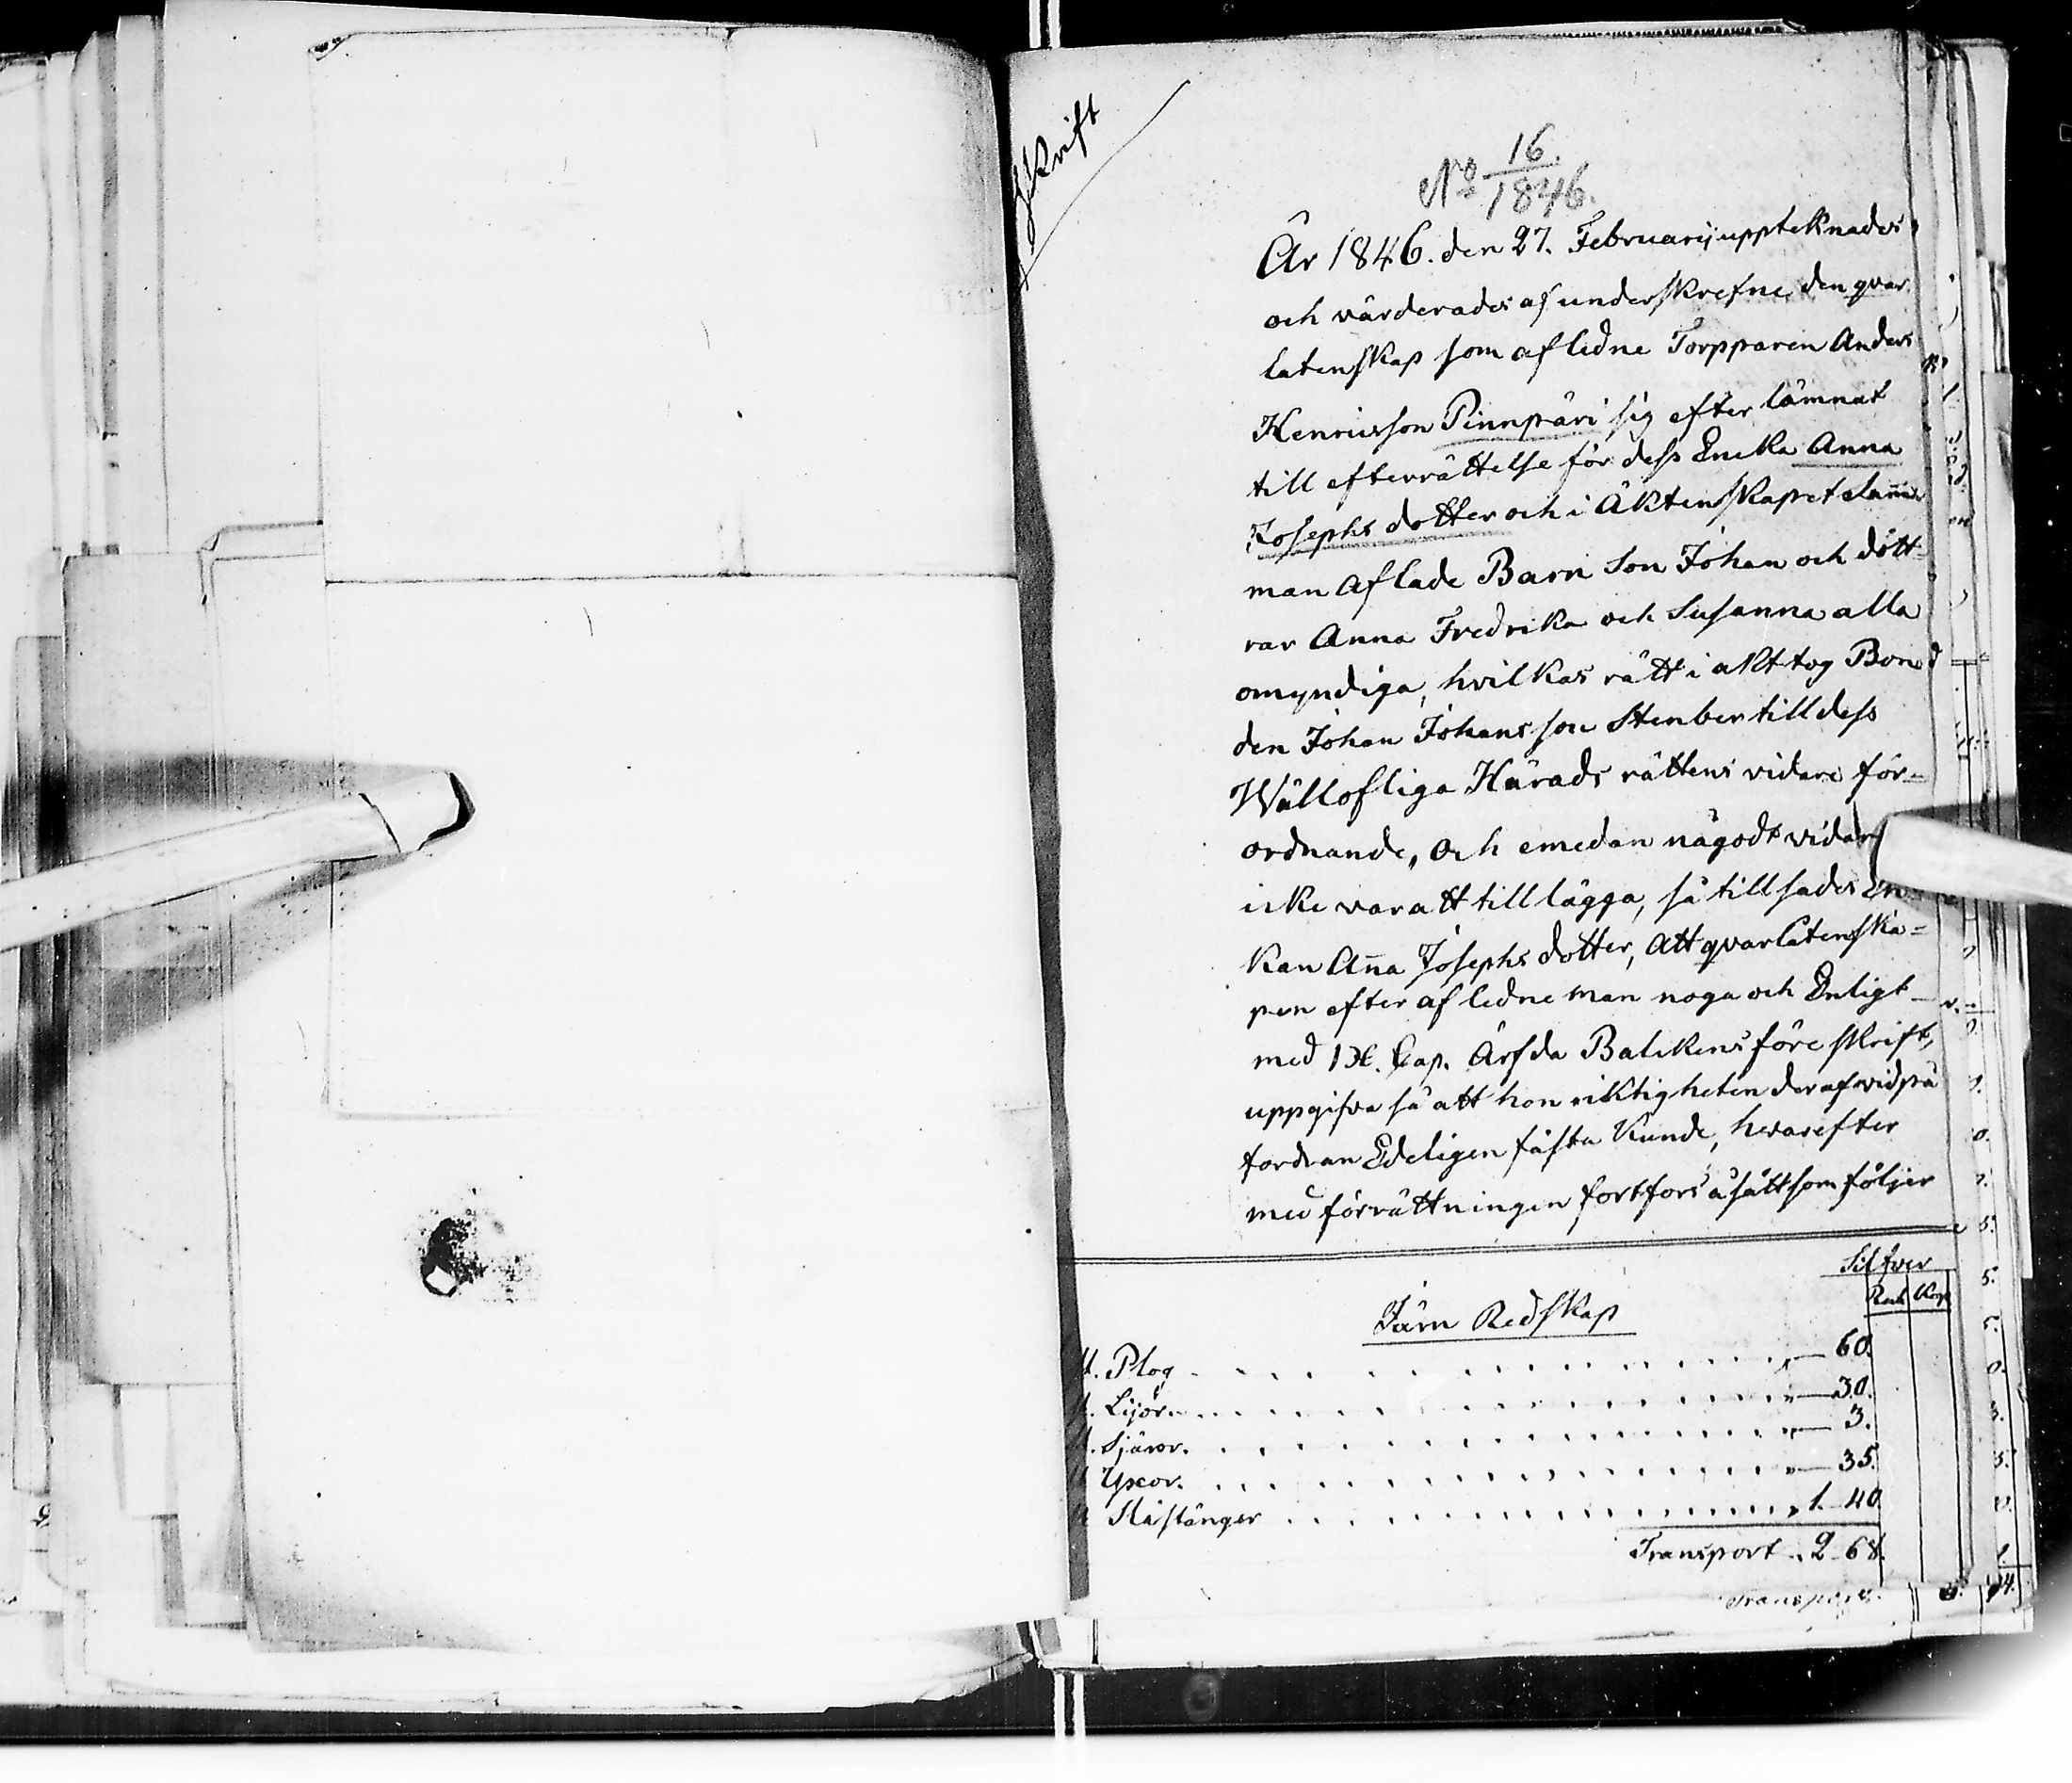 skrift
No 16/1846.
År 1846. den 27. Februarij uppteknades
och värderades af underskrefne, den qvar
latenskap som aflidne Torpparen Anders
Henricsson Pinnpäri sig efter lämnat
till efterrättelse för dess Encka Anna
Josephs dotter och i Äktenskapet
man aflade Barn Son Johan och dött-
rar Anna Fredrika och Susanna alla
omyndiga, hvilkas rätt i akt tog Bon
den Johan Johansson Stenber till dess
Wällofliga Härads rättens vidare för-
ordnande, Och emedan någodt vidare
icke var att till lägga, så till sades En
kan Anna Josephs dotter, att qvarlatenska-
pen efter af ledne man noga och Enligt
med IX. Cap. Ärfda Balckens före skrift,
uppgifva så att hon riktigheten deraf vid på
fordran Edeligen fästa Kunde, hvarefter
med förrättningen fortfors å sätt som följer
Silfver
Rub Kop
Järn Redskap
1. Plog . . . . „ — 60.
Lijor . . . . „ — 30.
Sjäror. . . . . „ — 3.
Yxor. . . . . „ — 35.
Slåstänger . . . . 1. 40
Transport . 2 68.
Transport.